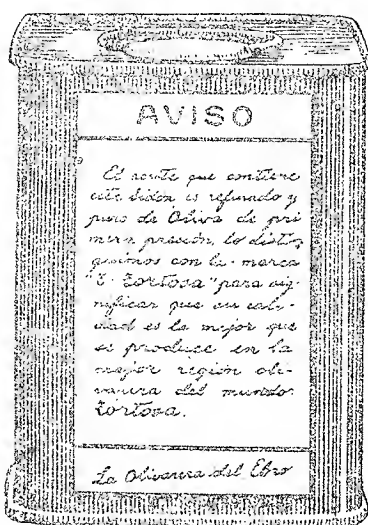 AVISO
El aceite que contiene
este bidón es refinado y
puro de Oliva de pri
mera presión, lo distin
guimos con la marca
"Tortosa" para sig-
nificar que su cali-
dad es la mejor que
se produce en la
mayor región oli-
varera del mundo:
Tortosa.
La Olivarera del Ebro